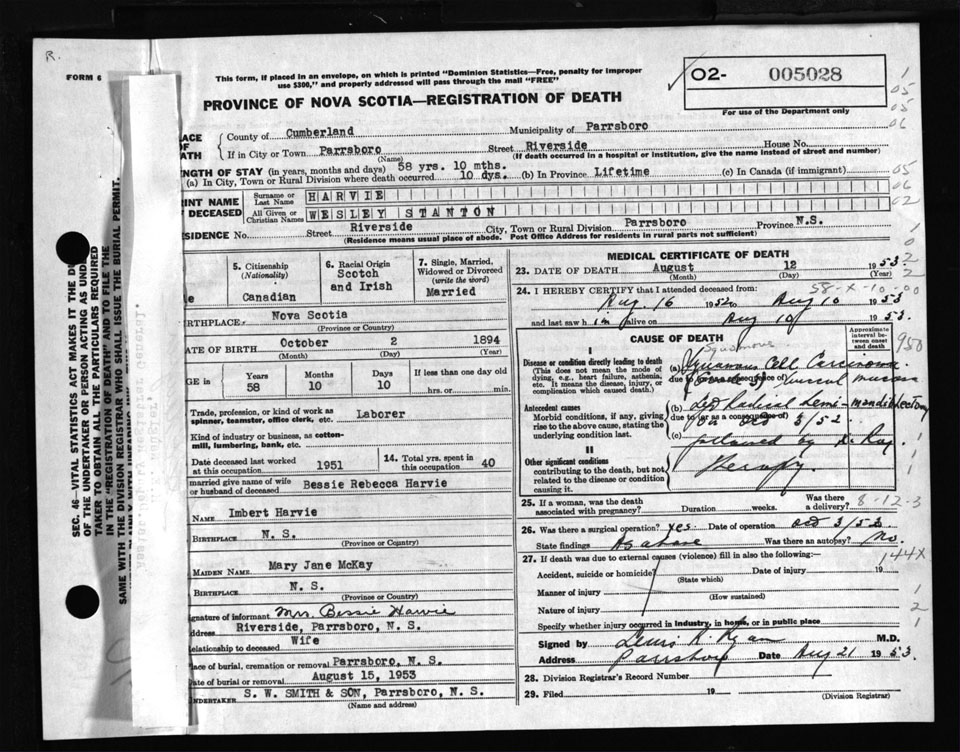 R.
FORM 6
This form, if placed in an envelope, on which is printed "Dominion Statistics—Free, penalty for improper
use $300," and properly addressed will pass through the mail "FREE"
O2- 005028
For use of the Department only
PROVINCE OF NOVA SCOTIA—REGISTRATION OF DEATH
1
05
05
06
05
06
02
LACE OF DEATH
County of Cumberland Municipality of Parrsboro
If in City or Town Parrsboro Street Riverside House No.
(Name) (If death occurred in a hospital or institution, give the name instead of street and number)
ENGTH OF STAY (in years, months and days) 58 yrs. 10 mths.
(a) In City, Town or Rural Division where death occurred 10 dys. (b) In Province Lifetime (c) In Canada (if immigrant)
RINT NAME F DECEASED
Surname or Last Name HARVIE
All Given or Christian Names WESLEY STANTON
ESIDENCE No. Street Riverside City, Town or Rural Division Parrsboro Province N.S.
(Residence means usual place of abode. Post Office Address for residents in rural parts not sufficient)
5. Citizenship (Nationality) Canadian
6. Racial Origin Scotch and Irish
7. Single, Married, Widowed or Divorced (write the word) Married
IRTHPLACE Nova Scotia
(Province or Country)
ATE OF BIRTH October 2 1894
(Month) (Day) (Year)
GE in Years 58 Months 10 Days 10 If less than one day old hrs. or min.
Trade, profession, or kind of work as
spinner, teamster, office clerk, etc. Laborer
Kind of industry or business, as cotton-
mill, lumbering, bank, etc.
Date deceased last worked
at this occupation 1951
14. Total yrs. spent in
this occupation 40
married give name of wife
or husband of deceased Bessie Rebecca Harvie
NAME Imbert Harvie
BIRTHPLACE N. S.
(Province or Country)
MAIDEN NAME Mary Jane McKay
BIRTHPLACE N. S.
(Province or Country)
gnature of informant Mrs. Bessie Harvie
ddress Riverside, Parrsboro, N. S.
elationship to deceased Wife
ace of burial, cremation or removal Parrsboro, N. S.
ate of burial or removal August 15, 1953
NDERTAKER S. W. SMITH & SON, Parrsboro, N. S.
(Name and address)
MEDICAL CERTIFICATE OF DEATH
23. DATE OF DEATH August 12 1953
(Month) (Day) (Year)
58-X-10-00
24. I HEREBY CERTIFY that I attended deceased from:
Aug. 16 1952 to Aug 10 1953
and last saw him alive on Aug 10 1953.
CAUSE OF DEATH
Approximate interval between onset and death
950
I
Disease or condition directly leading to death
(This does not mean the mode of
dying, e.g., heart failure, asthenia,
etc. It means the disease, injury, or
complication which caused death.)
Squamous
(a) Squamous Cell Carcinoma
due to (or as a consequence of) buccal mucosa
Antecedent causes
Morbid conditions, if any, giving
rise to the above cause, stating the
underlying condition last.
(b) Led Radical hemi-mandibulectomy
due to (or as a consequence of)
Oct 3/52
(c) followed by X Ray
therapy.
II
Other significant conditions
contributing to the death, but not
related to the disease or condition
causing it.
25. If a woman, was the death
associated with pregnancy? Duration weeks. Was there a delivery?
8-12-3
26. Was there a surgical operation? yes. Date of operation Oct 3/52
State findings As above Was there an autopsy? No.
27. If death was due to external causes (violence) fill in also the following:—
144X
Accident, suicide or homicide? Date of injury 19
(State which)
Manner of injury
(How sustained)
Nature of injury
Specify whether injury occurred in Industry, in home, or in public place
Signed by M.D.
Address Parrsboro Date Aug 21 1953.
28. Division Registrar's Record Number
29. Filed 19
(Division Registrar)
SEC. 46—VITAL STATISTICS ACT MAKES IT THE DU
OF THE UNDERTAKER OR PERSON ACTING AS UND
TAKER TO OBTAIN ALL THE PARTICULARS REQUIRED
IN THE "REGISTRATION OF DEATH" AND TO FILE THE
SAME WITH THE DIVISION REGISTRAR WHO SHALL ISSUE THE BURIAL PERMIT.